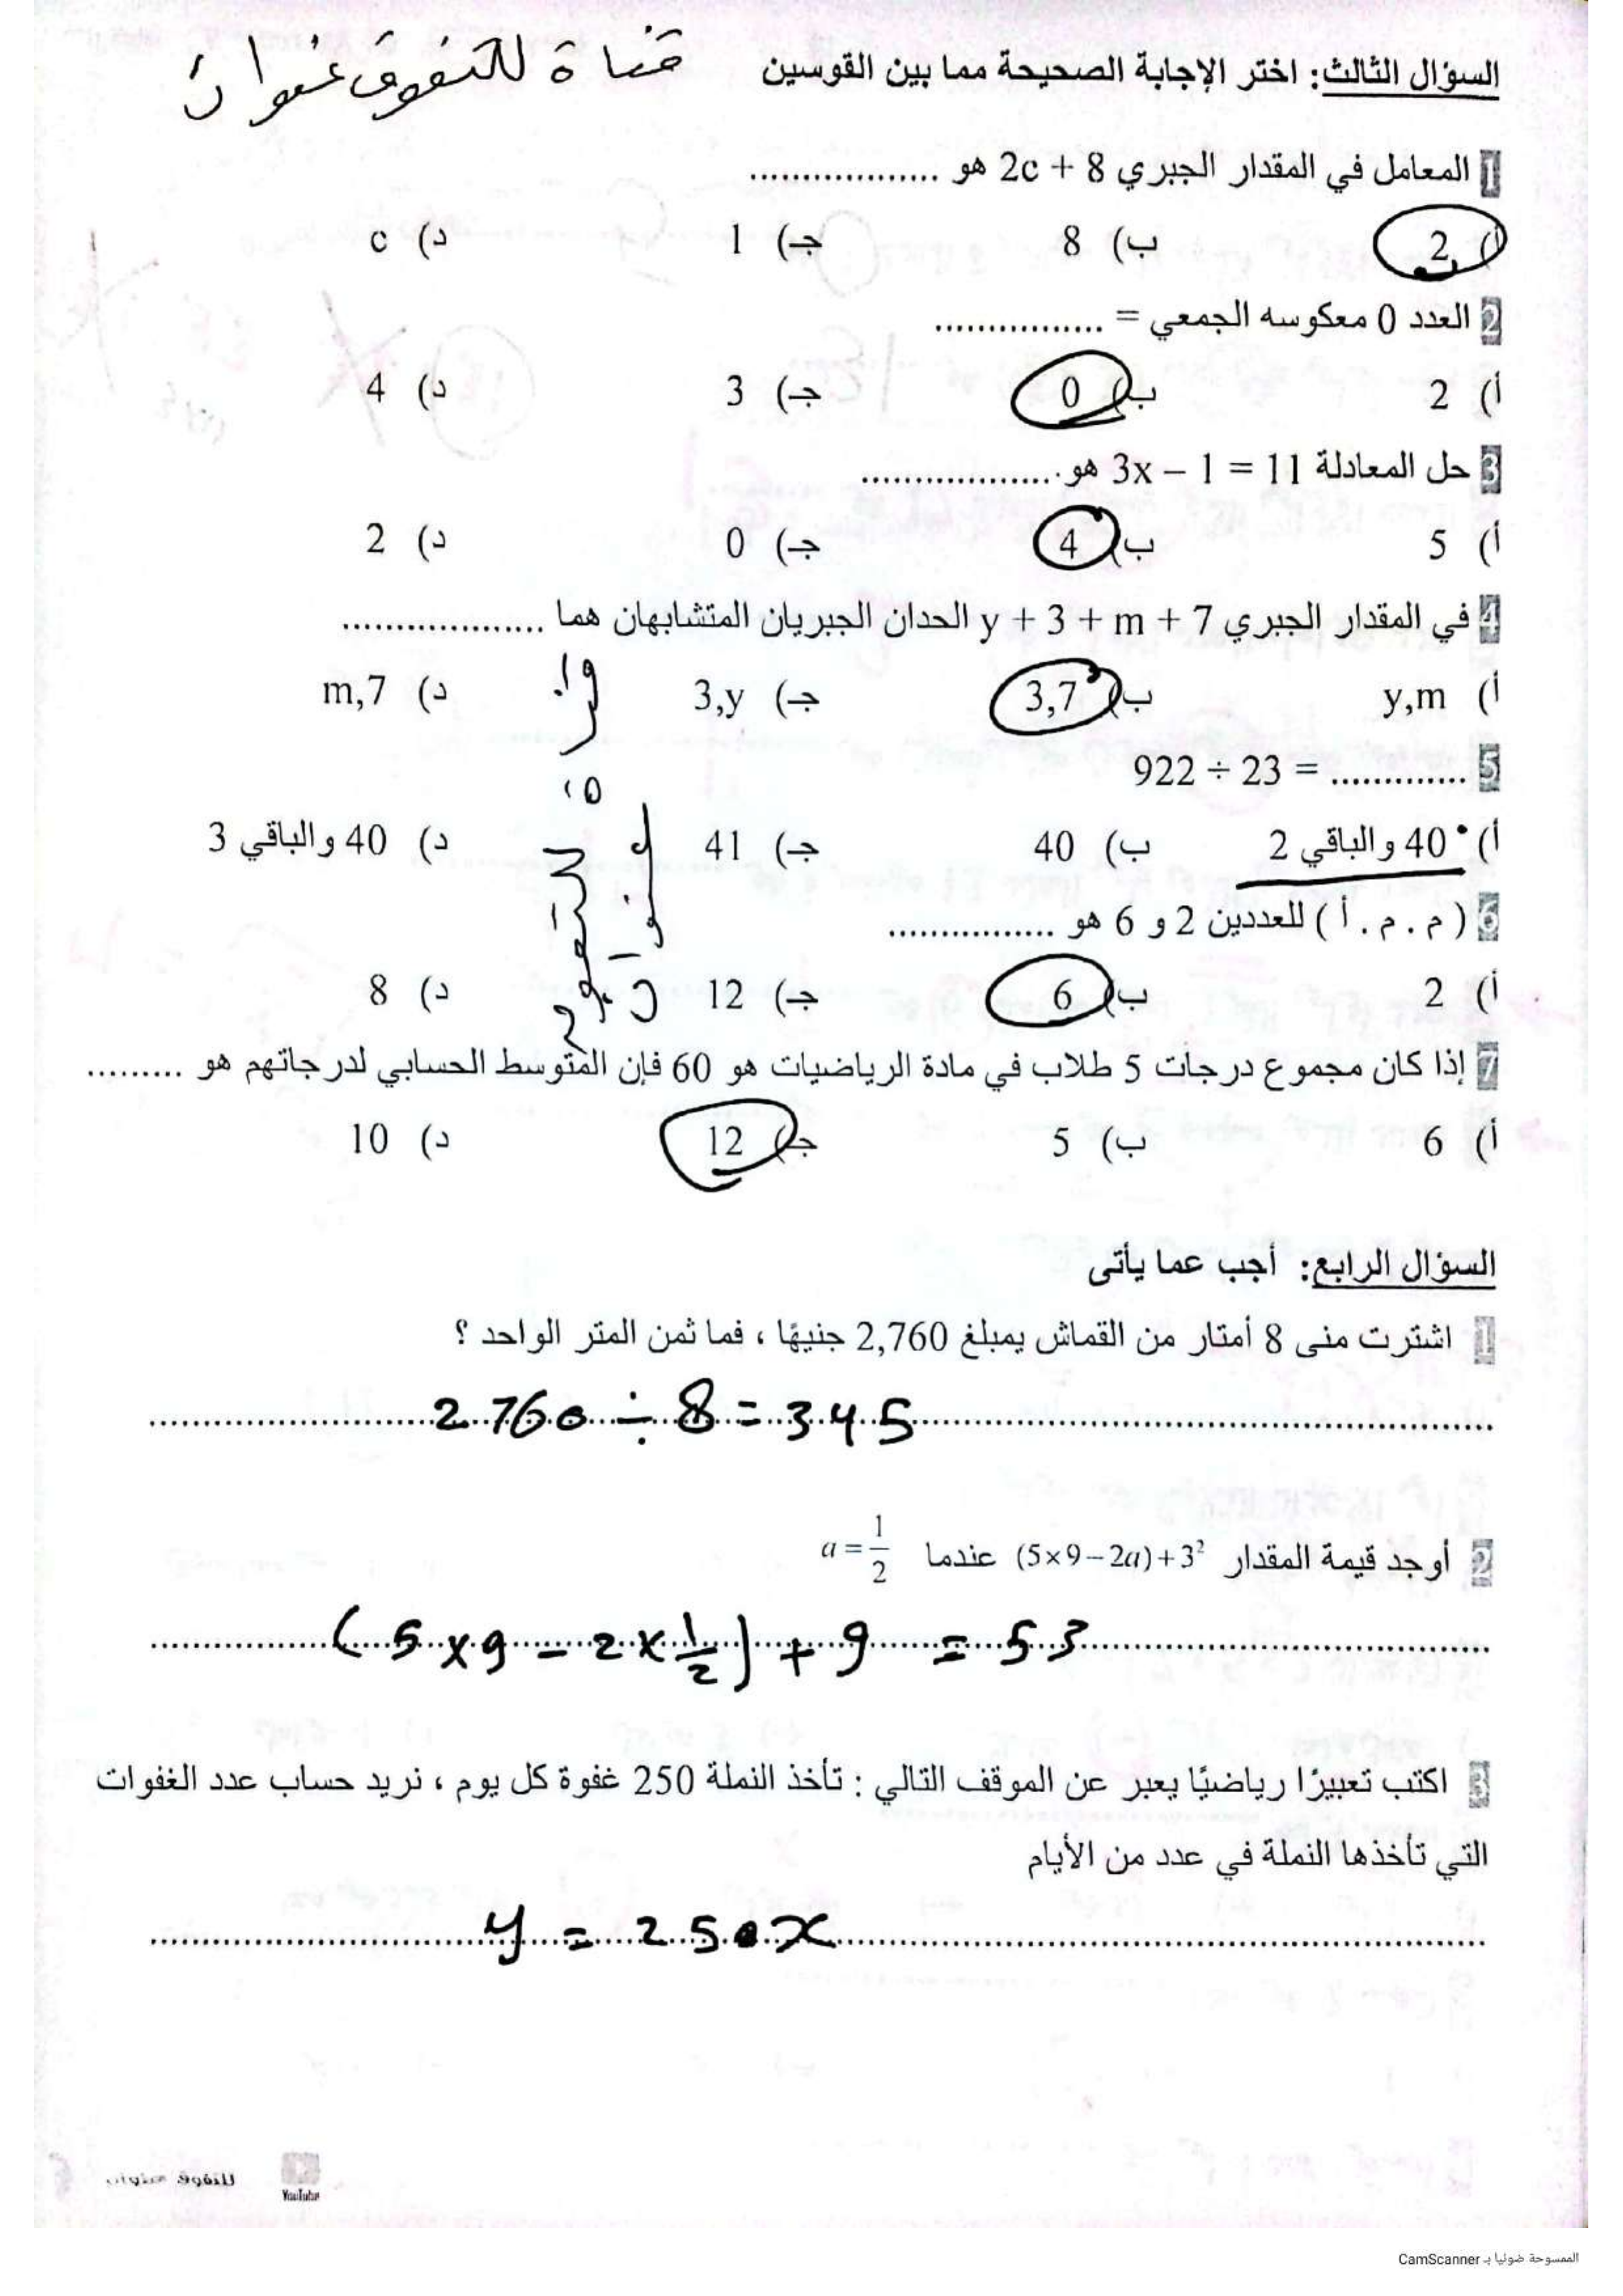 السؤال الثالث: اختر الإجابة الصحيحة مما بين القوسين
قناة للتفوق عنوان
1 المعامل في المقدار الجبري 2c + 8 هو ..................
أ) 2 ب) 8 جـ) 1 د) c
2 العدد 0 معكوسه الجمعي = ................
أ) 2 ب) 0 جـ) 3 د) 4
3 حل المعادلة 3x – 1 = 11 هو ..................
أ) 5 ب) 4 جـ) 0 د) 2
4 في المقدار الجبري y + 3 + m + 7 الحدان الجبريان المتشابهان هما ...................
أ) y,m ب) 3,7 جـ) 3,y د) m,7
5 922 ÷ 23 = .............
أ) 40 والباقي 2 ب) 40 جـ) 41 د) 40 والباقي 3
6 ( م . م . أ ) للعددين 2 و 6 هو ................
أ) 2 ب) 6 جـ) 12 د) 8
7 إذا كان مجموع درجات 5 طلاب في مادة الرياضيات هو 60 فإن المتوسط الحسابي لدرجاتهم هو .........
أ) 6 ب) 5 جـ) 12 د) 10
السؤال الرابع: أجب عما يأتى
1 اشترت منى 8 أمتار من القماش بمبلغ 2,760 جنيهًا ، فما ثمن المتر الواحد ؟
2760 ÷ 8 = 345
2 أوجد قيمة المقدار (5×9–2a)+3² عندما a = 1/2
(5 × 9 – 2 × 1/2) + 9 = 53
3 اكتب تعبيرًا رياضيًا يعبر عن الموقف التالي : تأخذ النملة 250 غفوة كل يوم ، نريد حساب عدد الغفوات
التي تأخذها النملة في عدد من الأيام
y = 250x
للتفوق عنوان
YouTube
الممسوحة ضوئيا بـ CamScanner